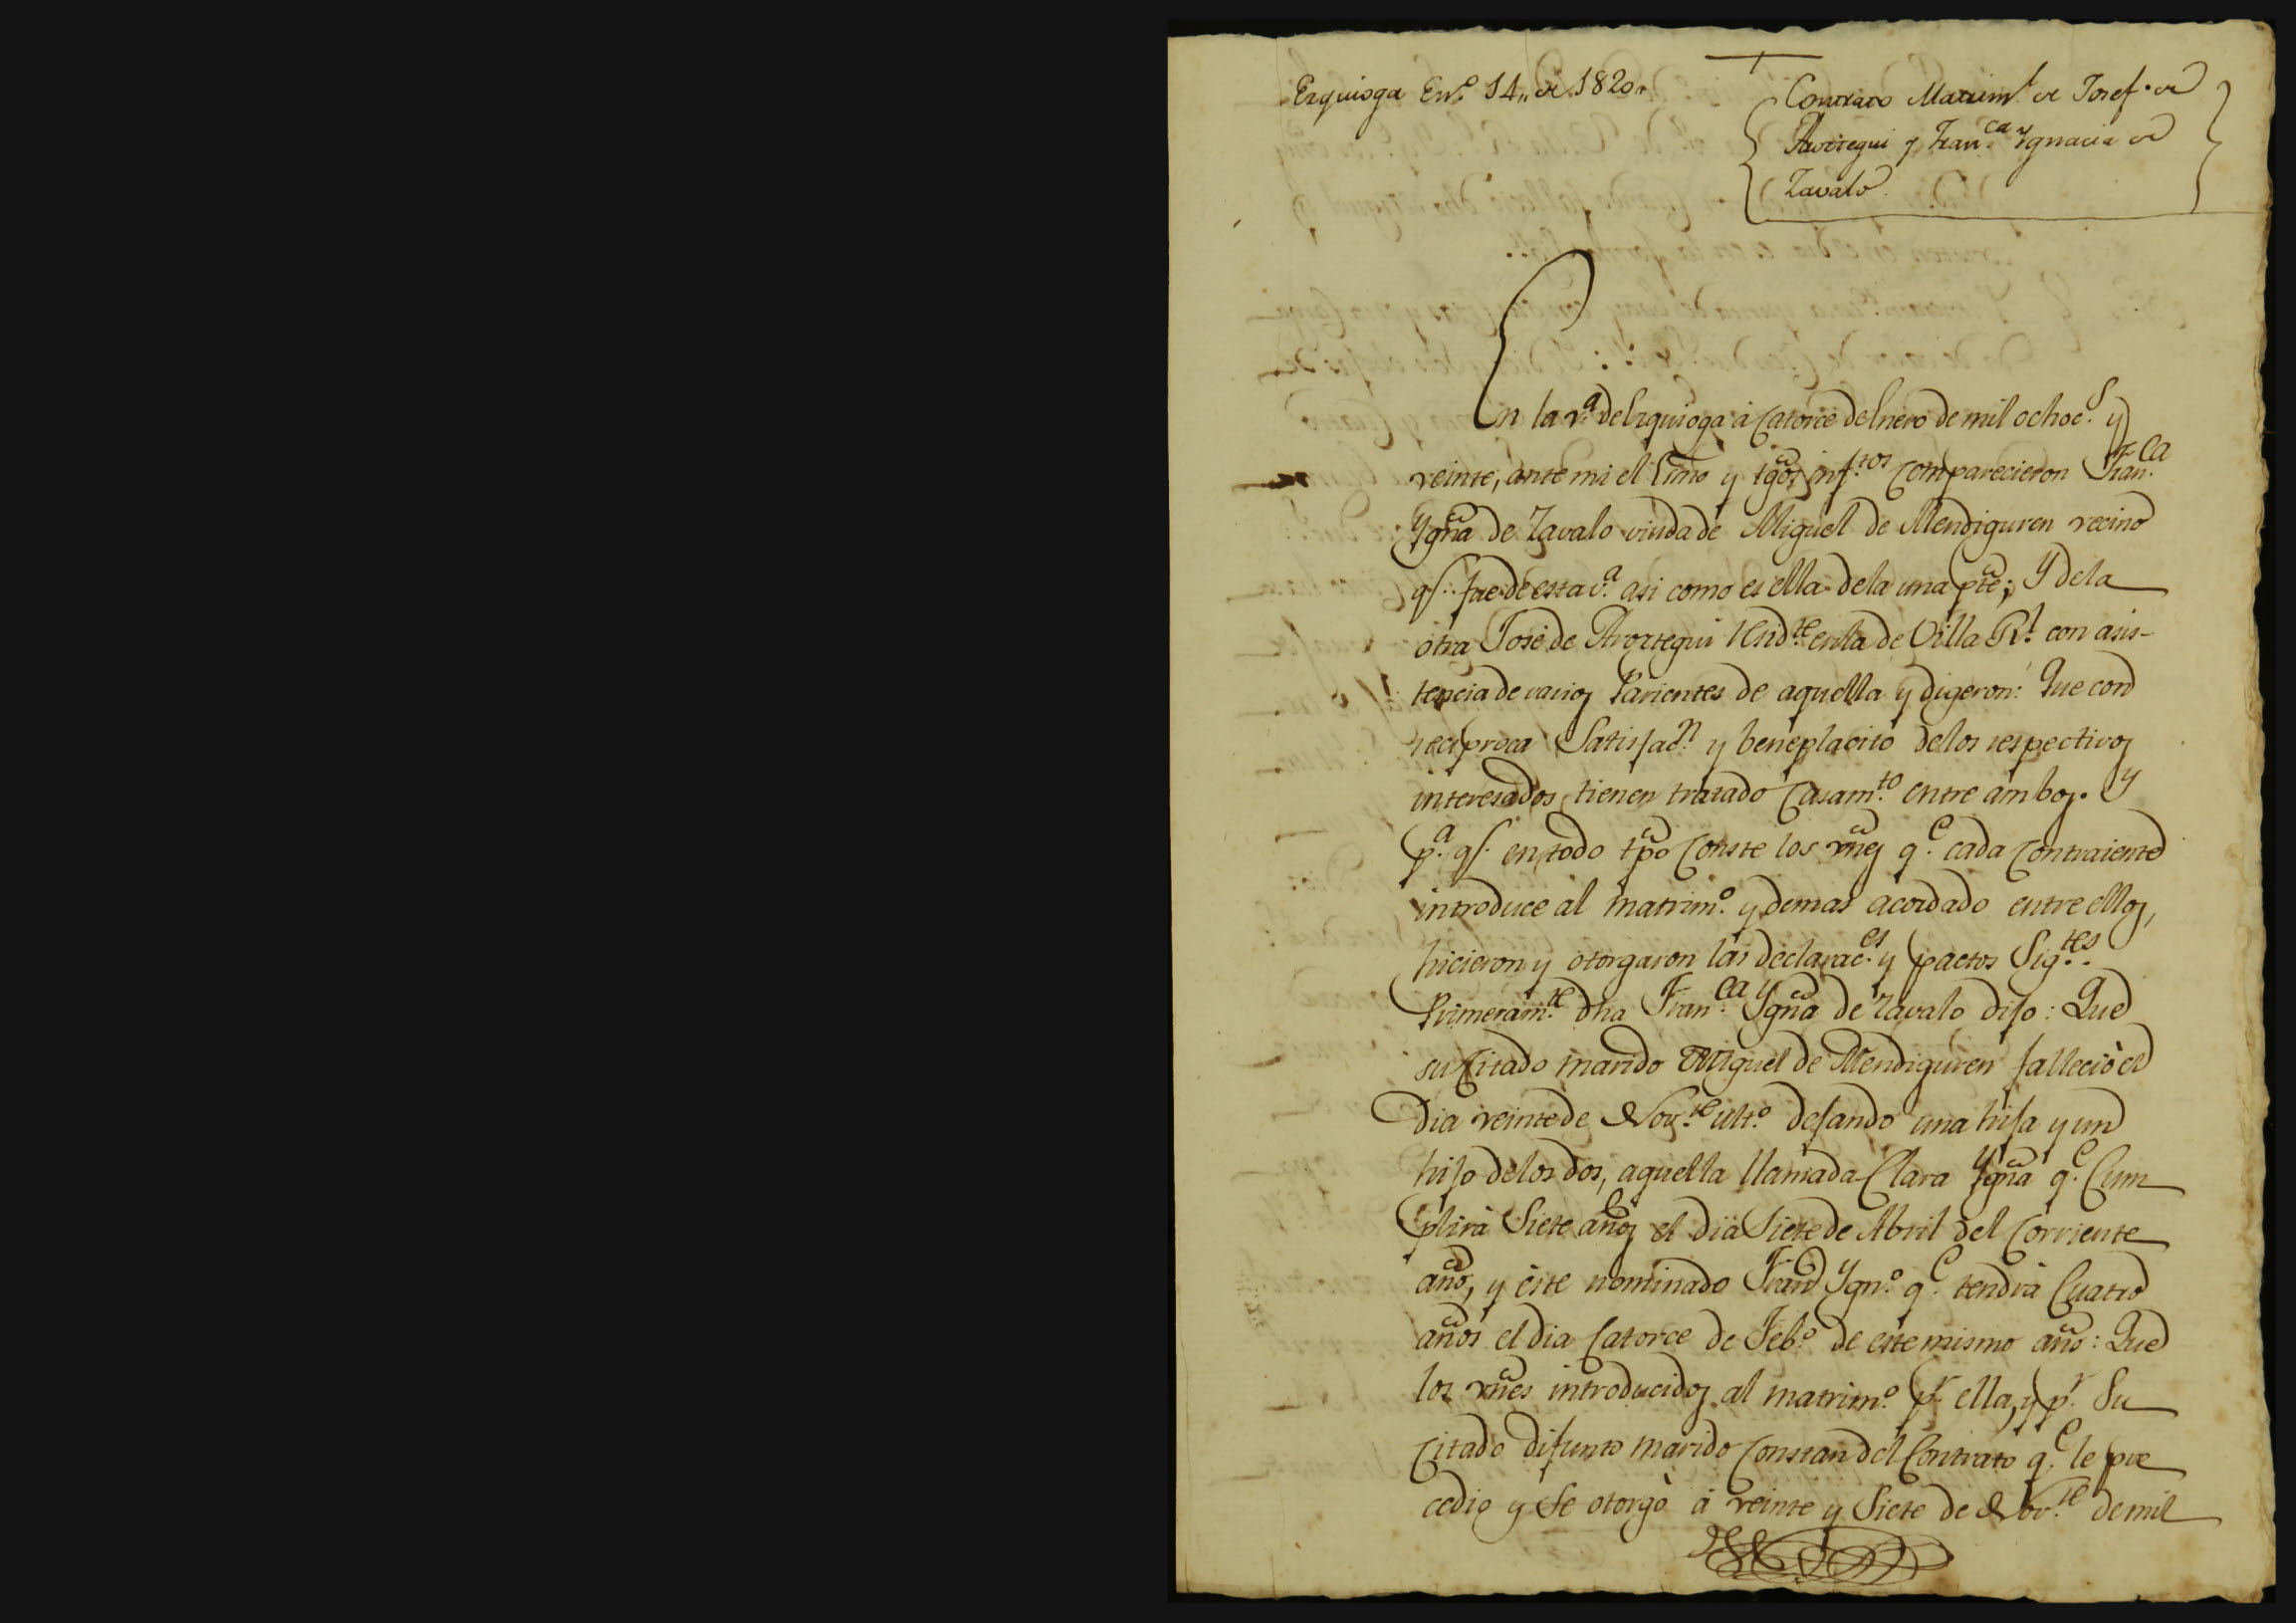 Ezquioga En.º 14,, de 1820,,
Contrato Matrim.l de Josef. de
Arortegui y Fran.ca Ygnacia de
Zavalo
En la v.ª de Ezquioga à catorce de Enero de mil ochoc.s y
veinte, ante mi el Essno y tgõs inf.tos comparecieron Fran.ca
Ygña de Zavalo viuda de Miguel de Mendiguren vecino
q.e fue de esta v.ª asi como es ella de la una pte; Y de la
otra José de Arortegui resid.te en la de Villa R.l con asis-
tencia de varios Parientes de aquella y digeron: Que con
reciproca Satisfac.n y beneplacito de los respectivos
interesados, tienen tratado casam.to entre ambos. Y
p.ª q.e en todo tpo conste los vñes q.e cada contraiente
introduce al matrim.º y demas acordado entre ellos,
hicieron y otorgaron las declarac.es y pactos Sig.tes.
Primeram.te dha Fran.ca Ygña de Zavalo dijo: Que
su citado marido Miguel de Mendiguren fallecio el
dia veinte de Nov.re ult.º dejando una hija y un
hijo de los dos, aquella llamada Clara Ygña q.e Cum
plirà Siete años el dia Siete de Abril del Corriente
año, y èste nominado Fran.co Ygn.º q.e tendrà Cuatro
años el dia Catorce de Feb.º de este mismo año: Que
los vñes introducidos al matrim.º p.r ella, y p.r Su
citado difunto marido constan del Contrato q.e le pre
cedio y Se otorgò à veinte y Siete de Nov.re de mil